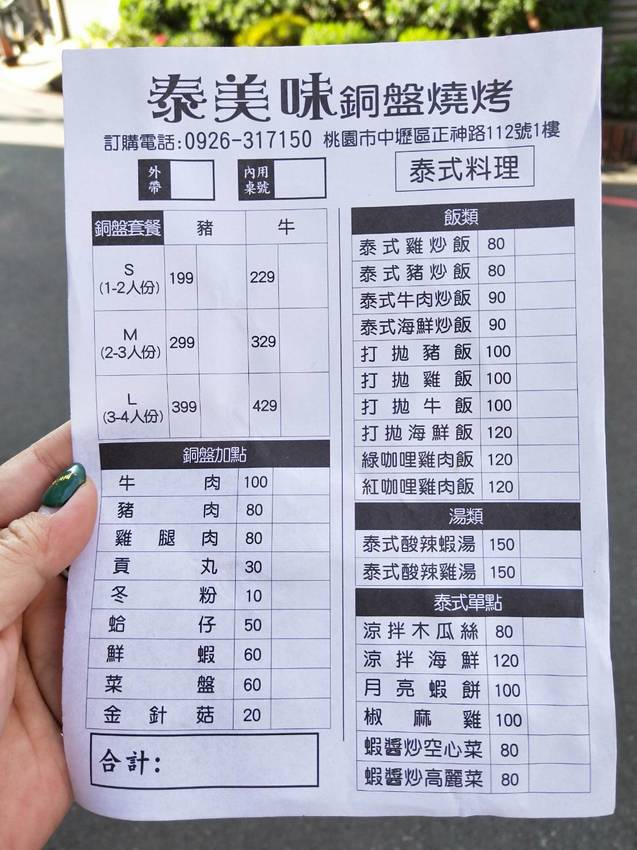 泰美味銅盤燒烤
訂購電話:0926-317150 桃園市中壢區正神路112號1樓
外帶
內用桌號
泰式料理
銅盤套餐 豬 牛
S
(1-2人份) 199 229
M
(2-3人份) 299 329
L
(3-4人份) 399 429
銅盤加點
牛肉 100
豬肉 80
雞腿肉 80
貢丸 30
冬粉 10
蛤仔 50
鮮蝦 60
菜盤 60
金針菇 20
合計:
飯類
泰式雞炒飯 80
泰式豬炒飯 80
泰式牛肉炒飯 90
泰式海鮮炒飯 90
打拋豬飯 100
打拋雞飯 100
打拋牛飯 100
打拋海鮮飯 120
綠咖哩雞肉飯 120
紅咖哩雞肉飯 120
湯類
泰式酸辣蝦湯 150
泰式酸辣雞湯 150
泰式單點
涼拌木瓜絲 80
涼拌海鮮 120
月亮蝦餅 100
椒麻雞 100
蝦醬炒空心菜 80
蝦醬炒高麗菜 80